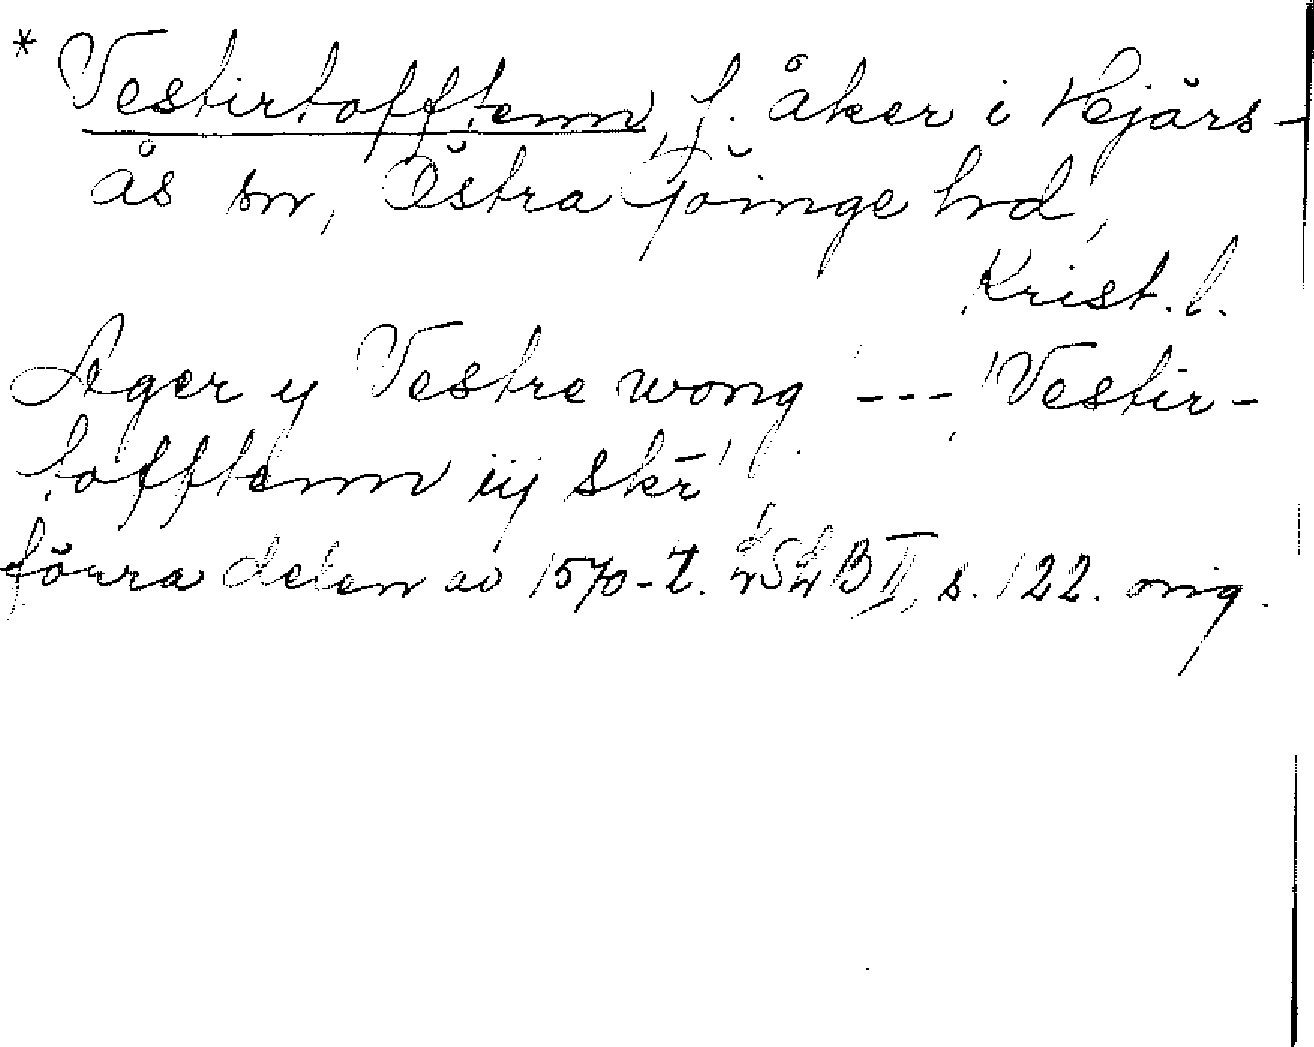 * Vestirtofftenn, f. åker i Hjärs-
ås sn, Östra Göinge hrd,
Krist. l.
Ager ij Vestre wong --- Vestir-
tofftenn iij skr̄
förra delen av 1570-t. LSLB II, s. 122. orig.